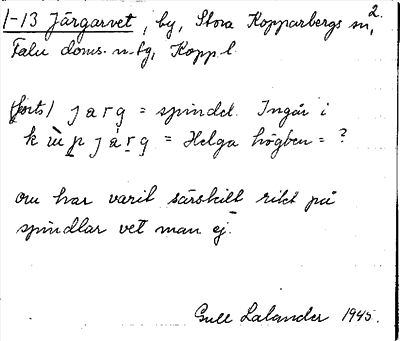 2.
1-13 Järgarvet, by, Stora Kopparbergs sn,
Falu doms. n. bg, Kopp. l.
(forts) jarg = spindel. Ingår i
järg = Helga högben = ?
om har varit särskilt rikt på
spindlar vet man ej.
Gull Lalander 1945.